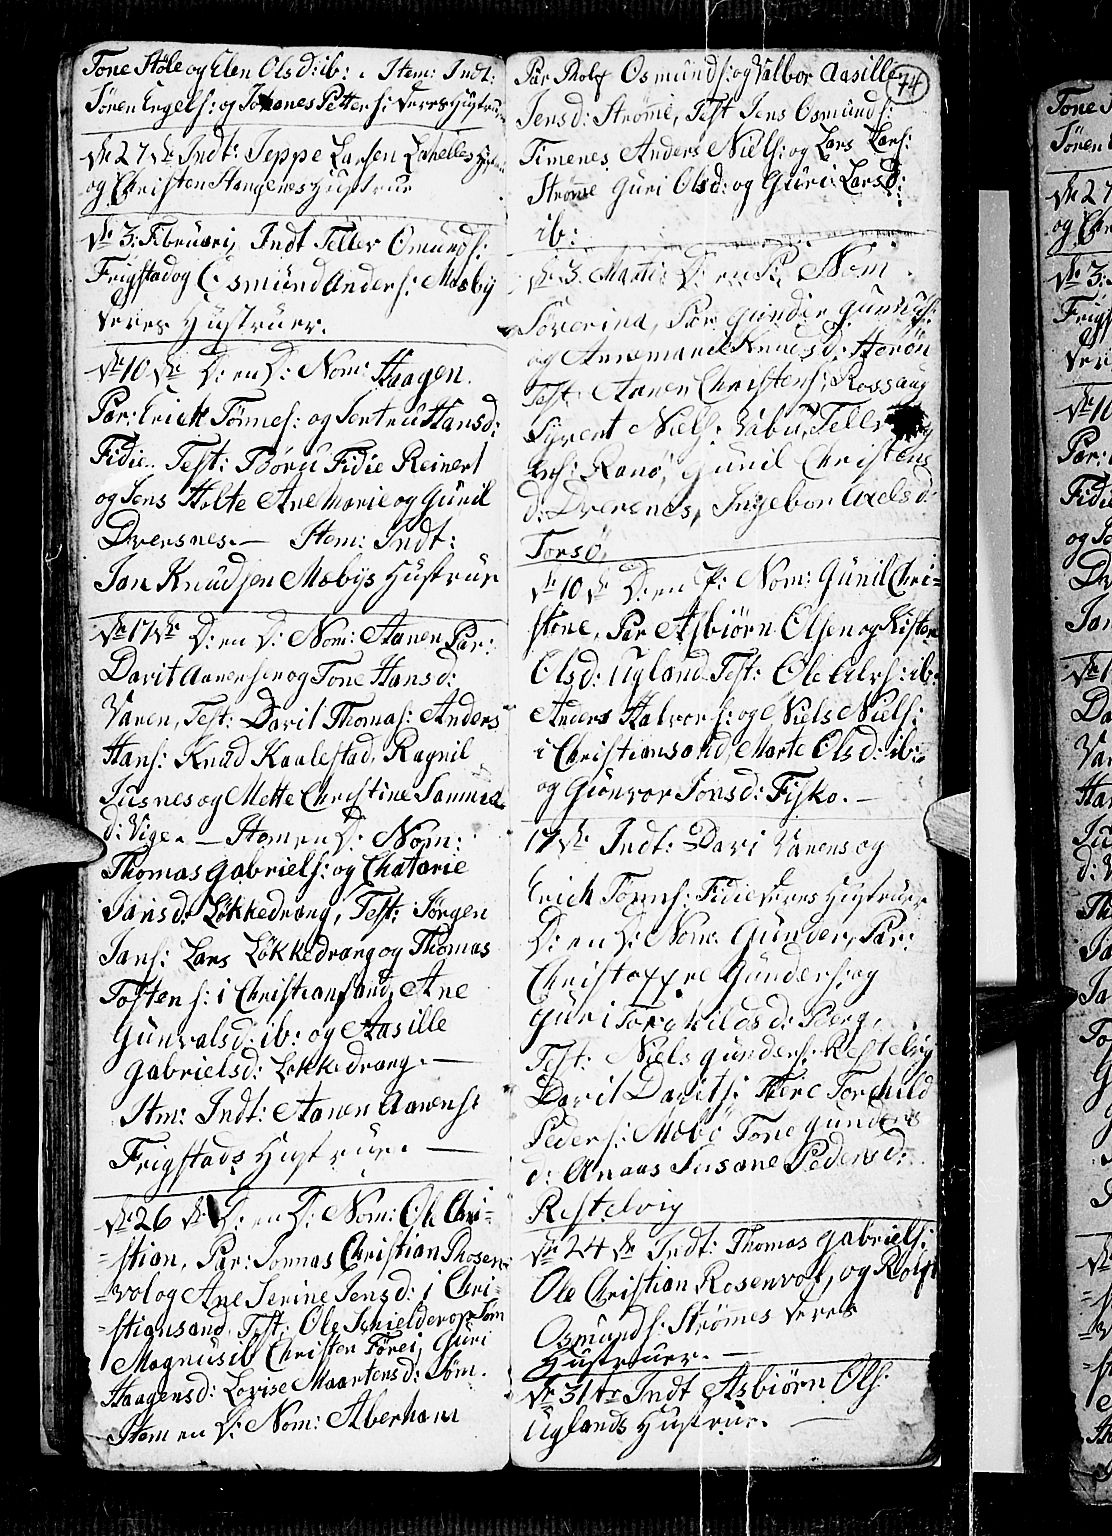 Tone Støle og Elen Olsd: ib: . Item: Indt:
Sören Engels: og Johanes Petters: deres Hustruer
den 27 de Indt: Jeppe Larsen
og Christen Stangenes Hustruer
den 3: Februari, Indt Tellev Omunds:
Frigstad og Osmund Anders: Mæbÿ
deres Hustruer.
den 10 de D: en D: Nom: Haagen.
Par: Erich Tönnes: og Sentru Hansd:
Fidie. Test: Tböru Fidie Reinert
og Jens Holte Ane Marie og Gunil
Dversnes. — Item: Indt:
Jan Knudsen Mæbÿs Hustrue
den 17 de D: en D: Nom: Aanen Par:
Davit Aanensen og Tone Hansd:
Varen, Test: Davit Thomas: Anders
Hans: Knud Kaalestad, Ragnil
Jusnes og Mette Christine Samuels
d: Vige. — Item en D: Nom:
Thomas Gabriels: og Chatarie
Jansd: Løkkedrang, Test: Jørgen
Jans: Lars Løkkedrang og Thomas
Tostens: i Christiansand, Ane
Gunvalsd: ib: og Aasille
Gabrielsd: Løkkedrang. —
Itm: Indt: Aanen Aanens:
Frigstads Hustrue. —
den 26 de D: en D: Nom: Ole Chri=
=stian, Par: Jonnas Christian Rosen
=vol og Ane Serine Jensd: i Chri=
=stiansand, Test: Ole Schielderop Tom
Magnus ib Christen Förei, Guri
Haagensd: Lovise Maartensd: Söm.
Item en D: Nom: Aberham
74
Par Rolf Osmunds: og Valbor Aasille
Jensd: Strømme, Test Jens Osmunds:
Timenes Anders Niels: og Lars Lars:
Strømme Guri Olsd: og Guri Larsd:
ib:
den 3. Martii D: en P: Nom
Söverina, Par Gunder Gunders:
og Annemarie Knudsd: Herön
Test: Aanen Christens: Rossaug
Syvert Niels: Tellev
Ranö, Gunil Christens
d: Dverenes, Ingebor Axelsd:
Torsö,
den 10 de D: en P: Nom: Gunil Chri=
stine, Par Asbiörn Olsen og Kisten
Olsd: Ugland Test: Ole Olss: ib:
Anders Halvors: og Niels Niels:
i Christiansand, Marte Olsd: ib:
og Gunvor Jonsd: Fisko. —
17 de Indt: Davi Varens og
Erich Tönns: Fidie deres Hustruer
D: en D: Nom. Gunder, Par:
Christoffre Gunders: og
Guri Torkildsd: Berg,
Test: Niels Gunders: Kestelvig
Davit Davits: Torchild
Peders: Mæbö Tone Gunders
d: Anaas Susane Pedersd:
Restelvig
den 24 de Indt: Thomas Gabriels:
Ole Christian Rosenvol, og Rolf
Osmunds: Strømes deres
Hustruer. —
den 31 te Indt Asbiörn Ols:
Uglands Hustrue. —